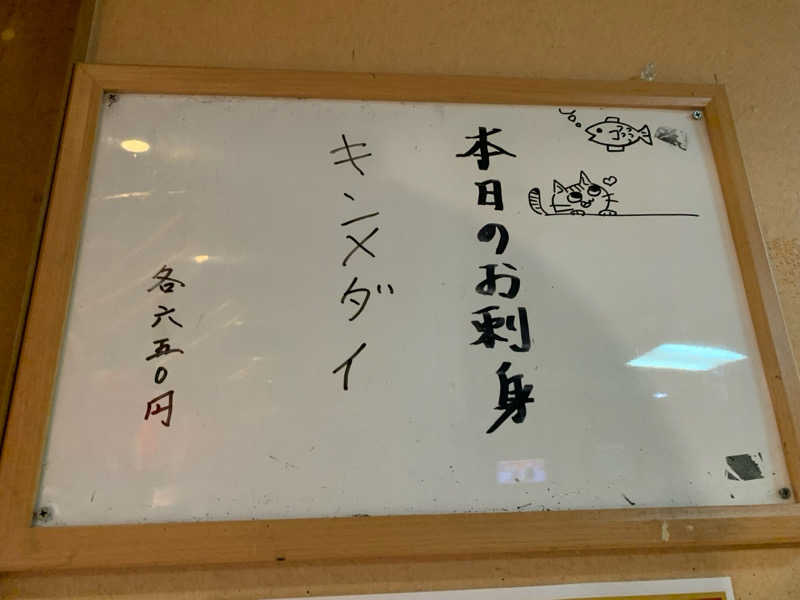 本日のお刺身
キンメダイ
各六五〇円